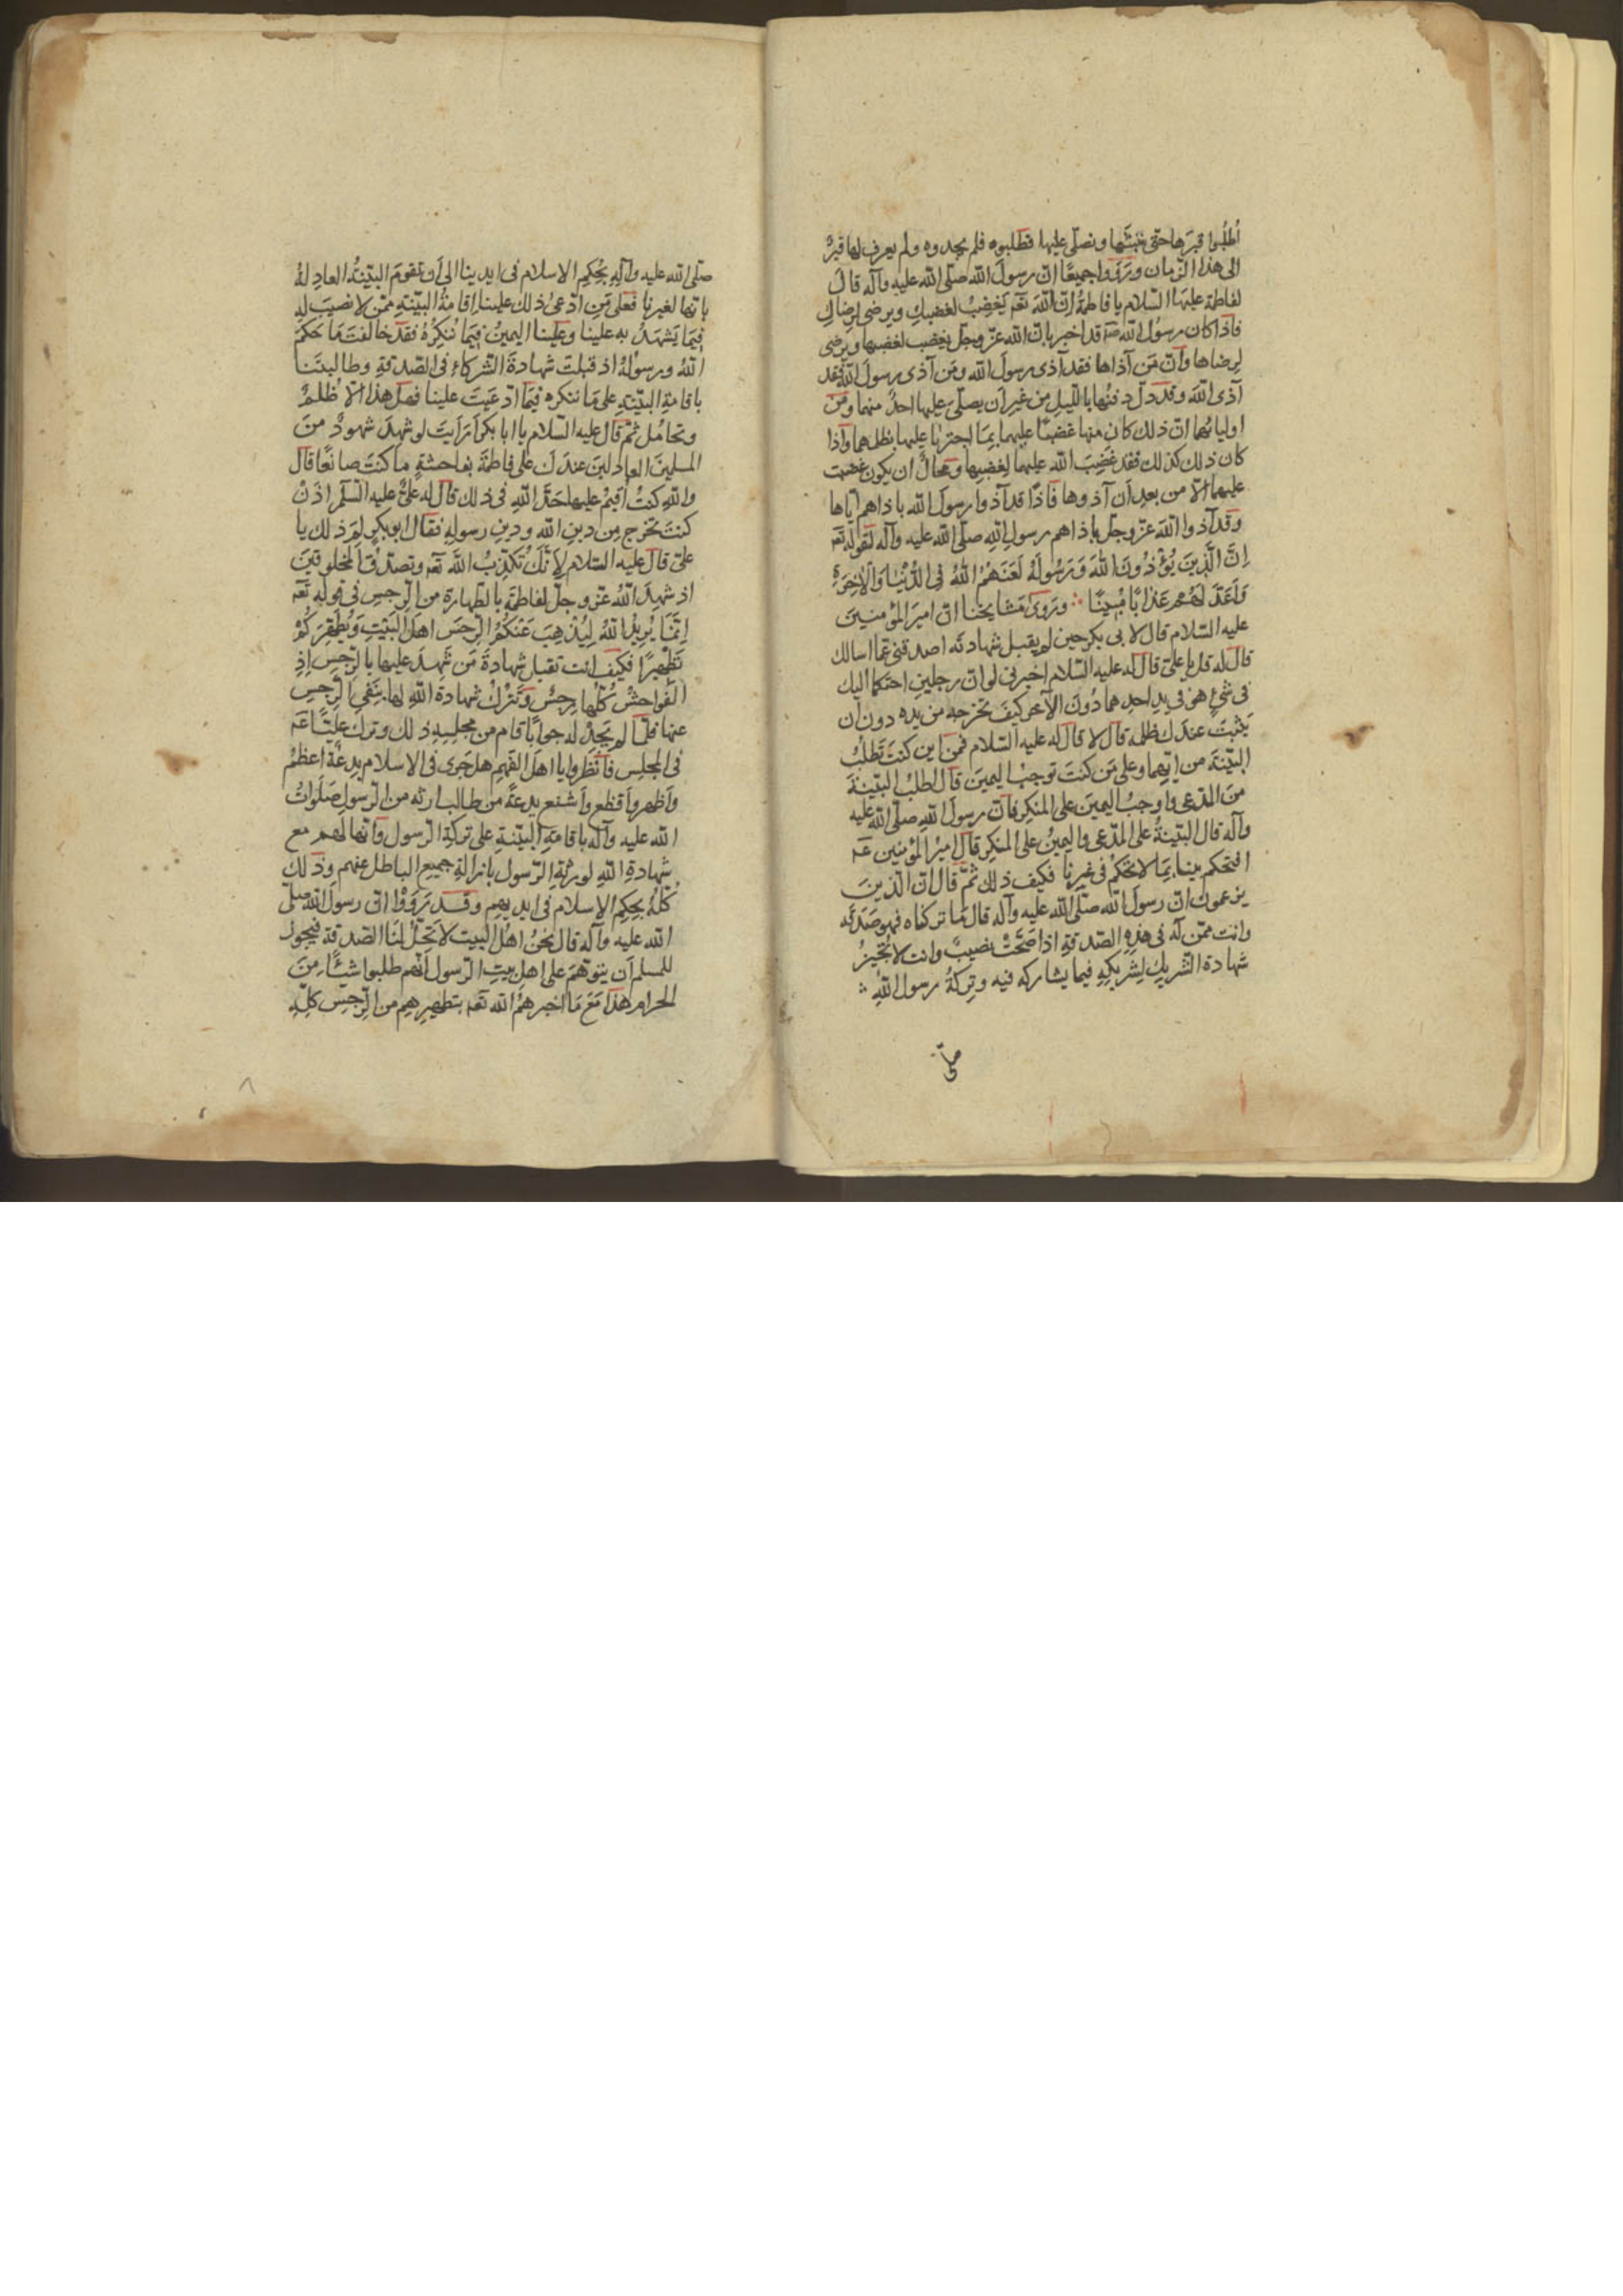 اُطلُبُوا قبرَها حتّى ننبُشَها ونصلّى عليها فطلبوه فلم يجدوه ولم يعرف لها قبرٌ
الى هذا الزّمان ورَوَوا جميعًا انّ رسولَ الله صلّى الله عليه وآله قال
لفاطمة عليها السّلام يا فاطمةُ انّ اللهَ تعَ يَغضِبُ لغضبكِ ويرضى لرضاكِ
فاذا كان رسُول الله صَ قد اخبر بانّ الله عزّ وجلّ يغضب لغضبها ويَرضى
لرِضاها وانّ مَن آذاها فقد آذى رسولَ الله ومَن آذى رسولَ اللهِ فقد
آذى اللهَ وقد دلّ دفنُها بالليلِ من غيرِ اَن يصلّىَ عليها احدٌ منهما ومن
اوليائهما انّ ذلك كان منها غضبًا عليهما بِمَا اجترَٰا عليها بظلمهما واذا
كان ذلك كذلك فقد غضِبَ الله عليهما لغضبِها ومحالٌ ان يكون غضبت
عليهما الّا من بعدِ اَن آذوها فاذًا قد آذوا رسولَ الله باذاهم ايّاها
وقد آذوا اللهَ عزّ وجلّ باذاهم رسولِ اللهِ صلّى الله عليه وآله لقوله تعَ
اِنَّ الَّذينَ يُؤْذُونَ اللهَ وَرَسُولَهُ لَعَنَهُمُ اللهُ فى الدُّنْيَا وَالْاٰخِرَةِ
وَاَعَدَّ لَهُمْ عَذَابًا مُبينًا ∴ ورَوىٰ مَشايخنا انّ اميرَ المؤمنينَ
عليه السّلام قال لابى بكر حين لم يقبل شهادتَه اصدقنى عمّا اسالك
قال له قل يا علىّ قال له عليه السّلام اخبرنى لو انّ رجلينِ احتكما اليك
فى شىءٍ هو فى يدِ احدِهما دُونَ الآخر كيفَ تخرجه من يده دون اَن
يَثبتَ عندك ظلمه قال لا قال له عليه السّلام فمن اين كنتَ تَطلُبُ
البيّنةَ من ايّهما وعلى مَن كنتَ توجبُ اليمينَ قال اطلبُ البيّنةَ
منَ المدّعى واوجبُ اليمينَ على المنكِر فانّ رسولَ اللهِ صلّى الله عليه
وآله قال البيّنةُ على المدّعى واليمينُ على المنكِر قال اميرُ المؤمنين عَم
افتحكم بيننا بِمَا لا تحكمُ فى غيرِنا فكيف ذلك ثمّ قال انّ الّذينَ
يزعمون انّ رسولَ الله صلّى الله عليه وآله قال مَا تركناه فهو صَدَقه
وانت ممّن له فى هذِهِ الصّدقةِ اذا صَحّتْ نصيبٌ وانت لا تُجيزُ
شهادةَ الشّريكِ لشريكِهِ فيما يشاركه فيه وتركةُ رسول اللهِ ∴
صلّى
صلّى الله عليه وآلِهِ بحُكمِ الاسلام فى ايدينا الى اَن تقومَ البيّنةُ العادِلةُ
بانّها لغيرنا فعلى مَنِ ادّعىٰ ذلك علينا اِقامةُ البيّنةِ ممّن لا نصيبَ له
فيمَا يَشهَدُ به علينا وعلينا اليمينُ فيمَا نُنكِرُهُ فقد خالفتَ مَا حَكمَ
اللهُ ورسولهُ اذ قبلتَ شهادةَ الشّركاءِ فى الصّدقةِ وطالبتَنا
باقامةِ البيّنةِ على مَا ننكره فيمَا ادّعيتَ علينا فهل هذا الّا ظُلمٌ
وتحامُل ثمّ قال عليه السّلام يا ابا بكر اَرَايتَ لو شهِدَ شهودٌ منَ
المسلمينَ العادلينَ عندك على فاطمةَ بفاحشةٍ ما كنتَ صانعًا قال
واللهِ كنتُ اُقيمُ عليها حَدَّ اللهِ فى ذلك قال له علىٌّ عليه السّلم اذَنْ
كنتَ تخرج مِن دينِ الله ودينِ رسولِهِ فقال ابو بكرٍ لِمَ ذلك يا
علىّ قال عليه السّلام لِاَنّكَ تُكذِّبُ اللهَ تعَ وتصدّقُ المخلوقينَ
اذ شهِدَ اللهُ عزّ وجلّ لفاطمة بالطّهارة من الرّجسِ فى قوله تعَ
اِنَّمَا يُرِيدُ اللهُ لِيُذْهِبَ عَنْكُمُ الرِّجسَ اهلَ البَيْتِ وَيُطَهِّرَكُمْ
تَطْهيرًا فكيف انت تقبل شهادةَ مَن شهِدَ عليها بالرّجسِ اِذِ
الفواحشُ كُلُّها رِجسٌ وتَترُكُ شهادةَ اللهِ لها بنَفىِ الرّجسِ
عنها فلمّا لم يَجِدْ له جوابًا قام من مجلِسِهِ ذلك وترك عليًّا عَم
فى المجلِس فانظروا يا اهلَ الفَهمِ هل جَرى فى الاسلام بِدعةٌ اعظمُ
واَظهر واَفظع واَشنع بِدعةً من طالب ورثه من الرّسولِ صَلَواتُ
الله عليه وآله باقامةِ البيّنةِ على تركةِ الرّسول وانّها لهم مع
شهادةِ اللهِ لورثةِ الرّسول بازالةِ جميعِ الباطل عنهم وذلك
كلّهُ بحكمِ الاسلام فى ايديهم وقد رَوَوْا انّ رسولَ اللهِ صلّى
الله عليه وآله قال نحنُ اهلُ البيتِ لا تَحِلُّ لَنَا الصّدقة فيجوز
للمسلم اَن يتوهّمَ على اهلِ بيتِ الرّسول انّهم طلبوا شيئًا مِنَ
الحرام هذا مَعَ مَا اخبرهُم الله تعَ بتطهيرهِم من الرّجسِ كلِّهِ
٨